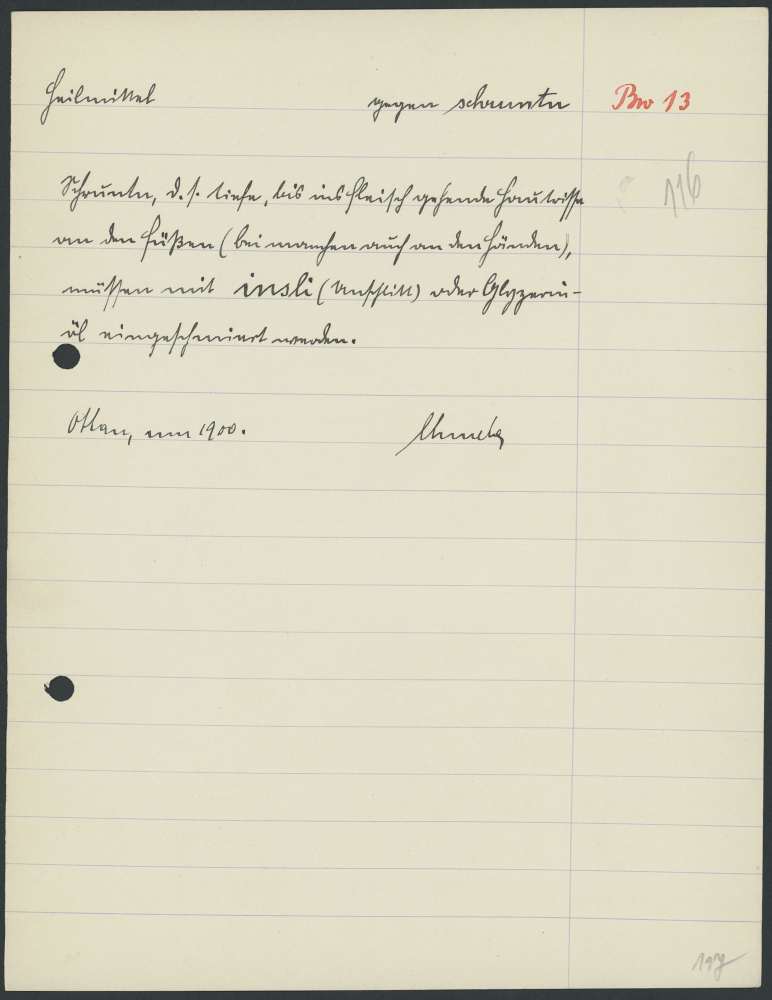 Heilmittel gegen schruntn Bro 13
116
Schruntn, d. s. tiefe, bis ins Fleisch gehende Hautrisse
an den Füßen (bei manchen auch an den Händen),
müssen mit insli (Unschlitt) oder Glyzerin-
öl eingeschmiert werden.
Ottau, um 1900.
197